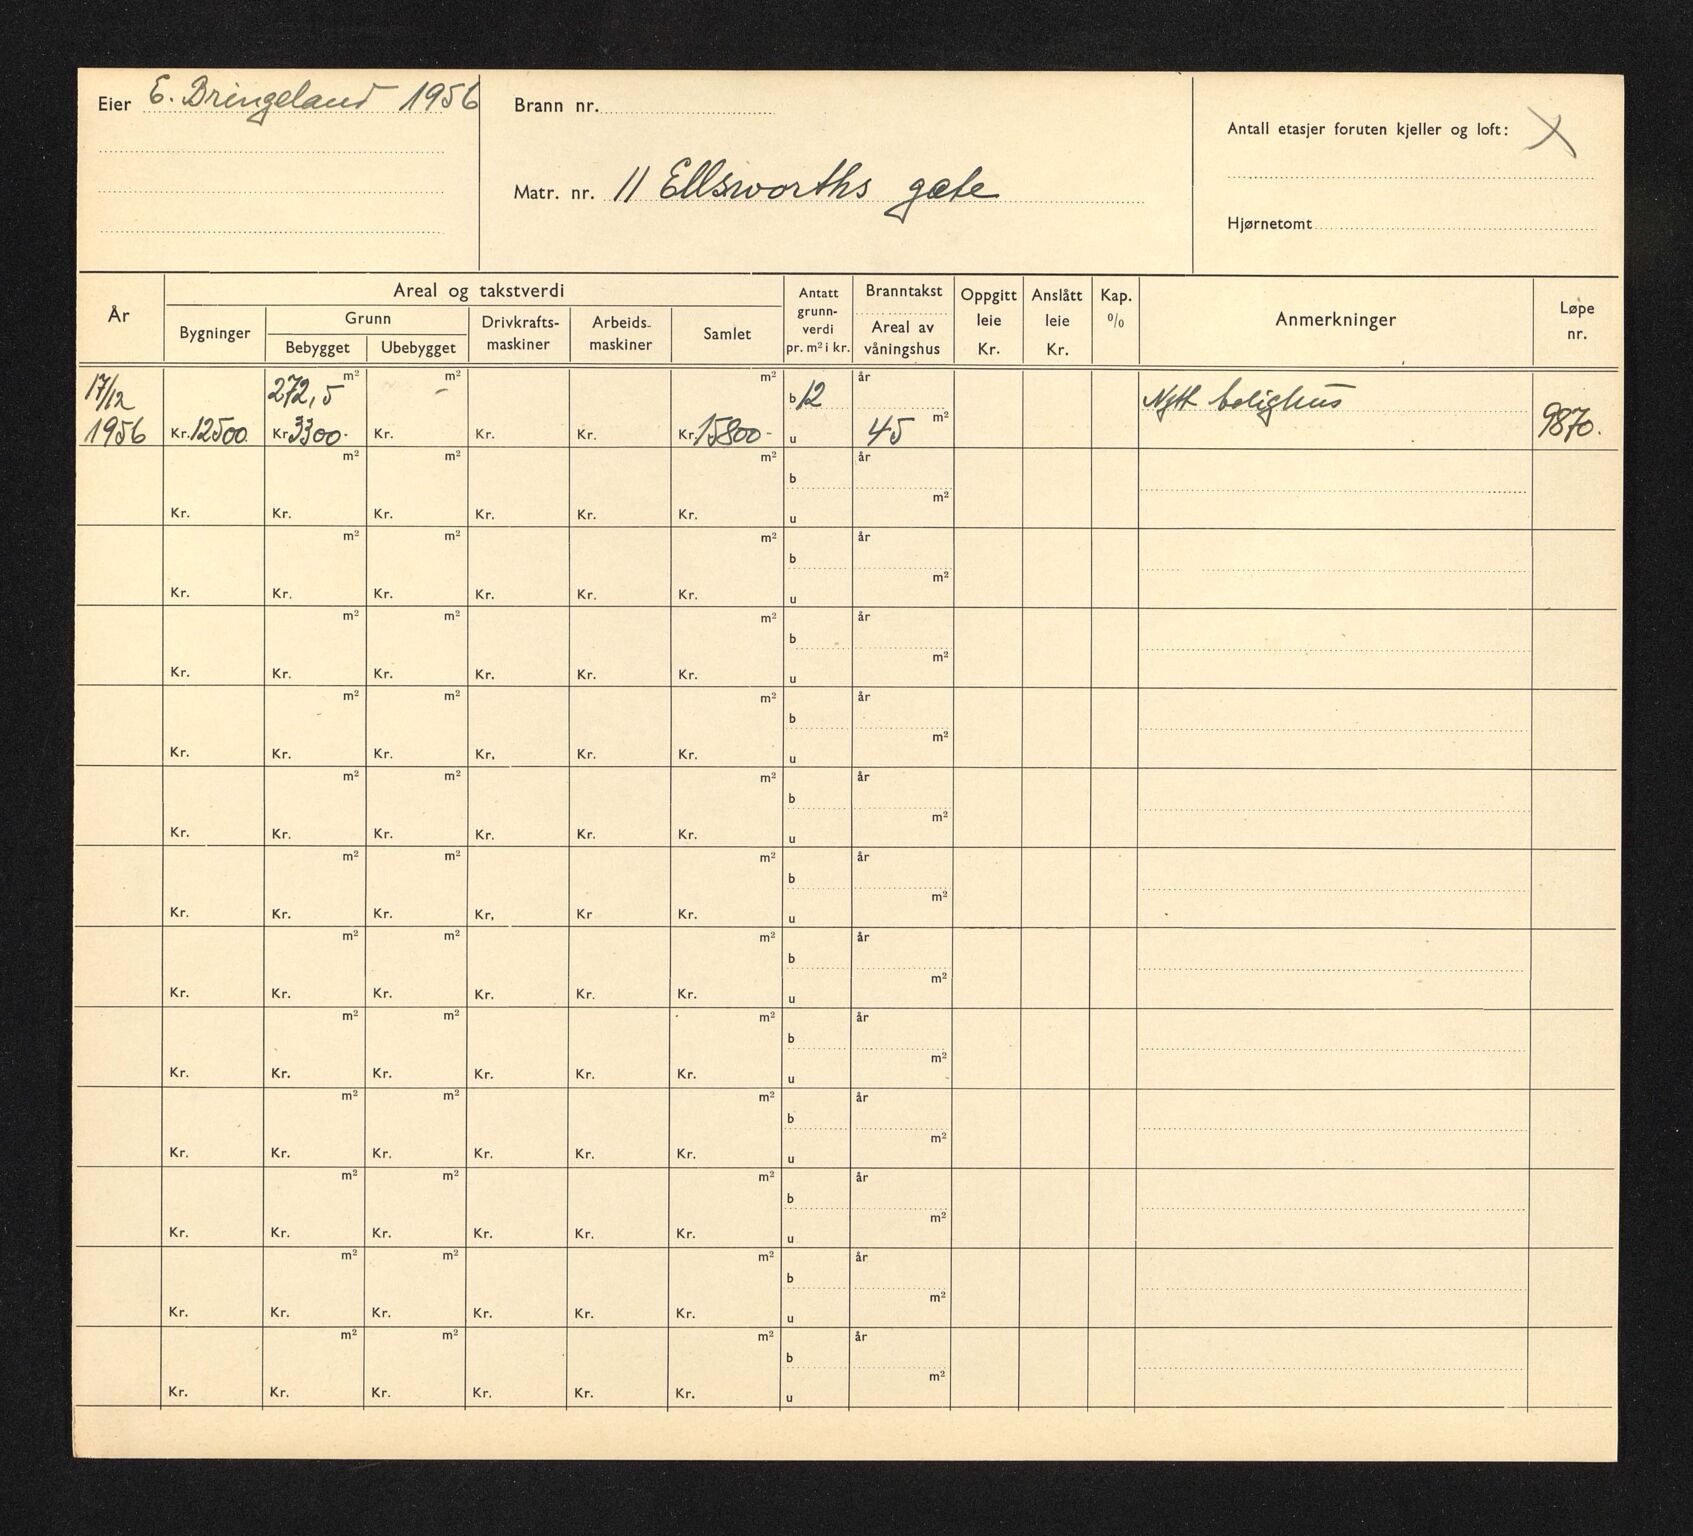 Eier E. Bringeland 1956
Brann nr.
Matr. nr. 11 Ellsworths gate
Antall etasjer foruten kjeller og loft: X
Hjørnetomt
År
Areal og takstverdi
Bygninger
Grunn
Bebygget
Ubebygget
Drivkrafts-
maskiner
Arbeids-
maskiner
Samlet
Antatt
grunn-
verdi
pr. m² i kr.
Branntakst
Areal av
våningshus
Oppgitt
leie
Kr.
Anslått
leie
Kr.
Kap.
%
Anmerkninger
Løpe
nr.
17/12 272,5 m² - m² m² b 12 år Nytt bolighus
1956 Kr. 12500 Kr. 3300.- Kr. Kr. Kr. Kr. 15800- u 45 m² 9870.
m² m² m² b år
Kr. Kr. Kr. Kr. Kr. Kr. u m²
m² m² m² b år
Kr. Kr. Kr. Kr. Kr. Kr. u m²
m² m² m² b år
Kr. Kr. Kr. Kr. Kr. Kr. u m²
m² m² m² b år
Kr. Kr. Kr. Kr. Kr. Kr. u m²
m² m² m² b år
Kr. Kr. Kr. Kr. Kr. Kr. u m²
m² m² m² b år
Kr. Kr. Kr. Kr. Kr Kr. u m²
m² m² m² b år
Kr. Kr. Kr. Kr. Kr. Kr. u m²
m² m² m² b år
Kr. Kr. Kr. Kr. Kr. Kr. u m²
m² m² m² b år
Kr. Kr. Kr. Kr. Kr. Kr. u m²
m² m² m² b år
Kr. Kr. Kr. Kr. Kr. Kr. u m²
m² m² m² b år
Kr. Kr. Kr. Kr. Kr. Kr. u m²
m² m² m² b år
Kr. Kr. Kr. Kr. Kr. Kr. u m²